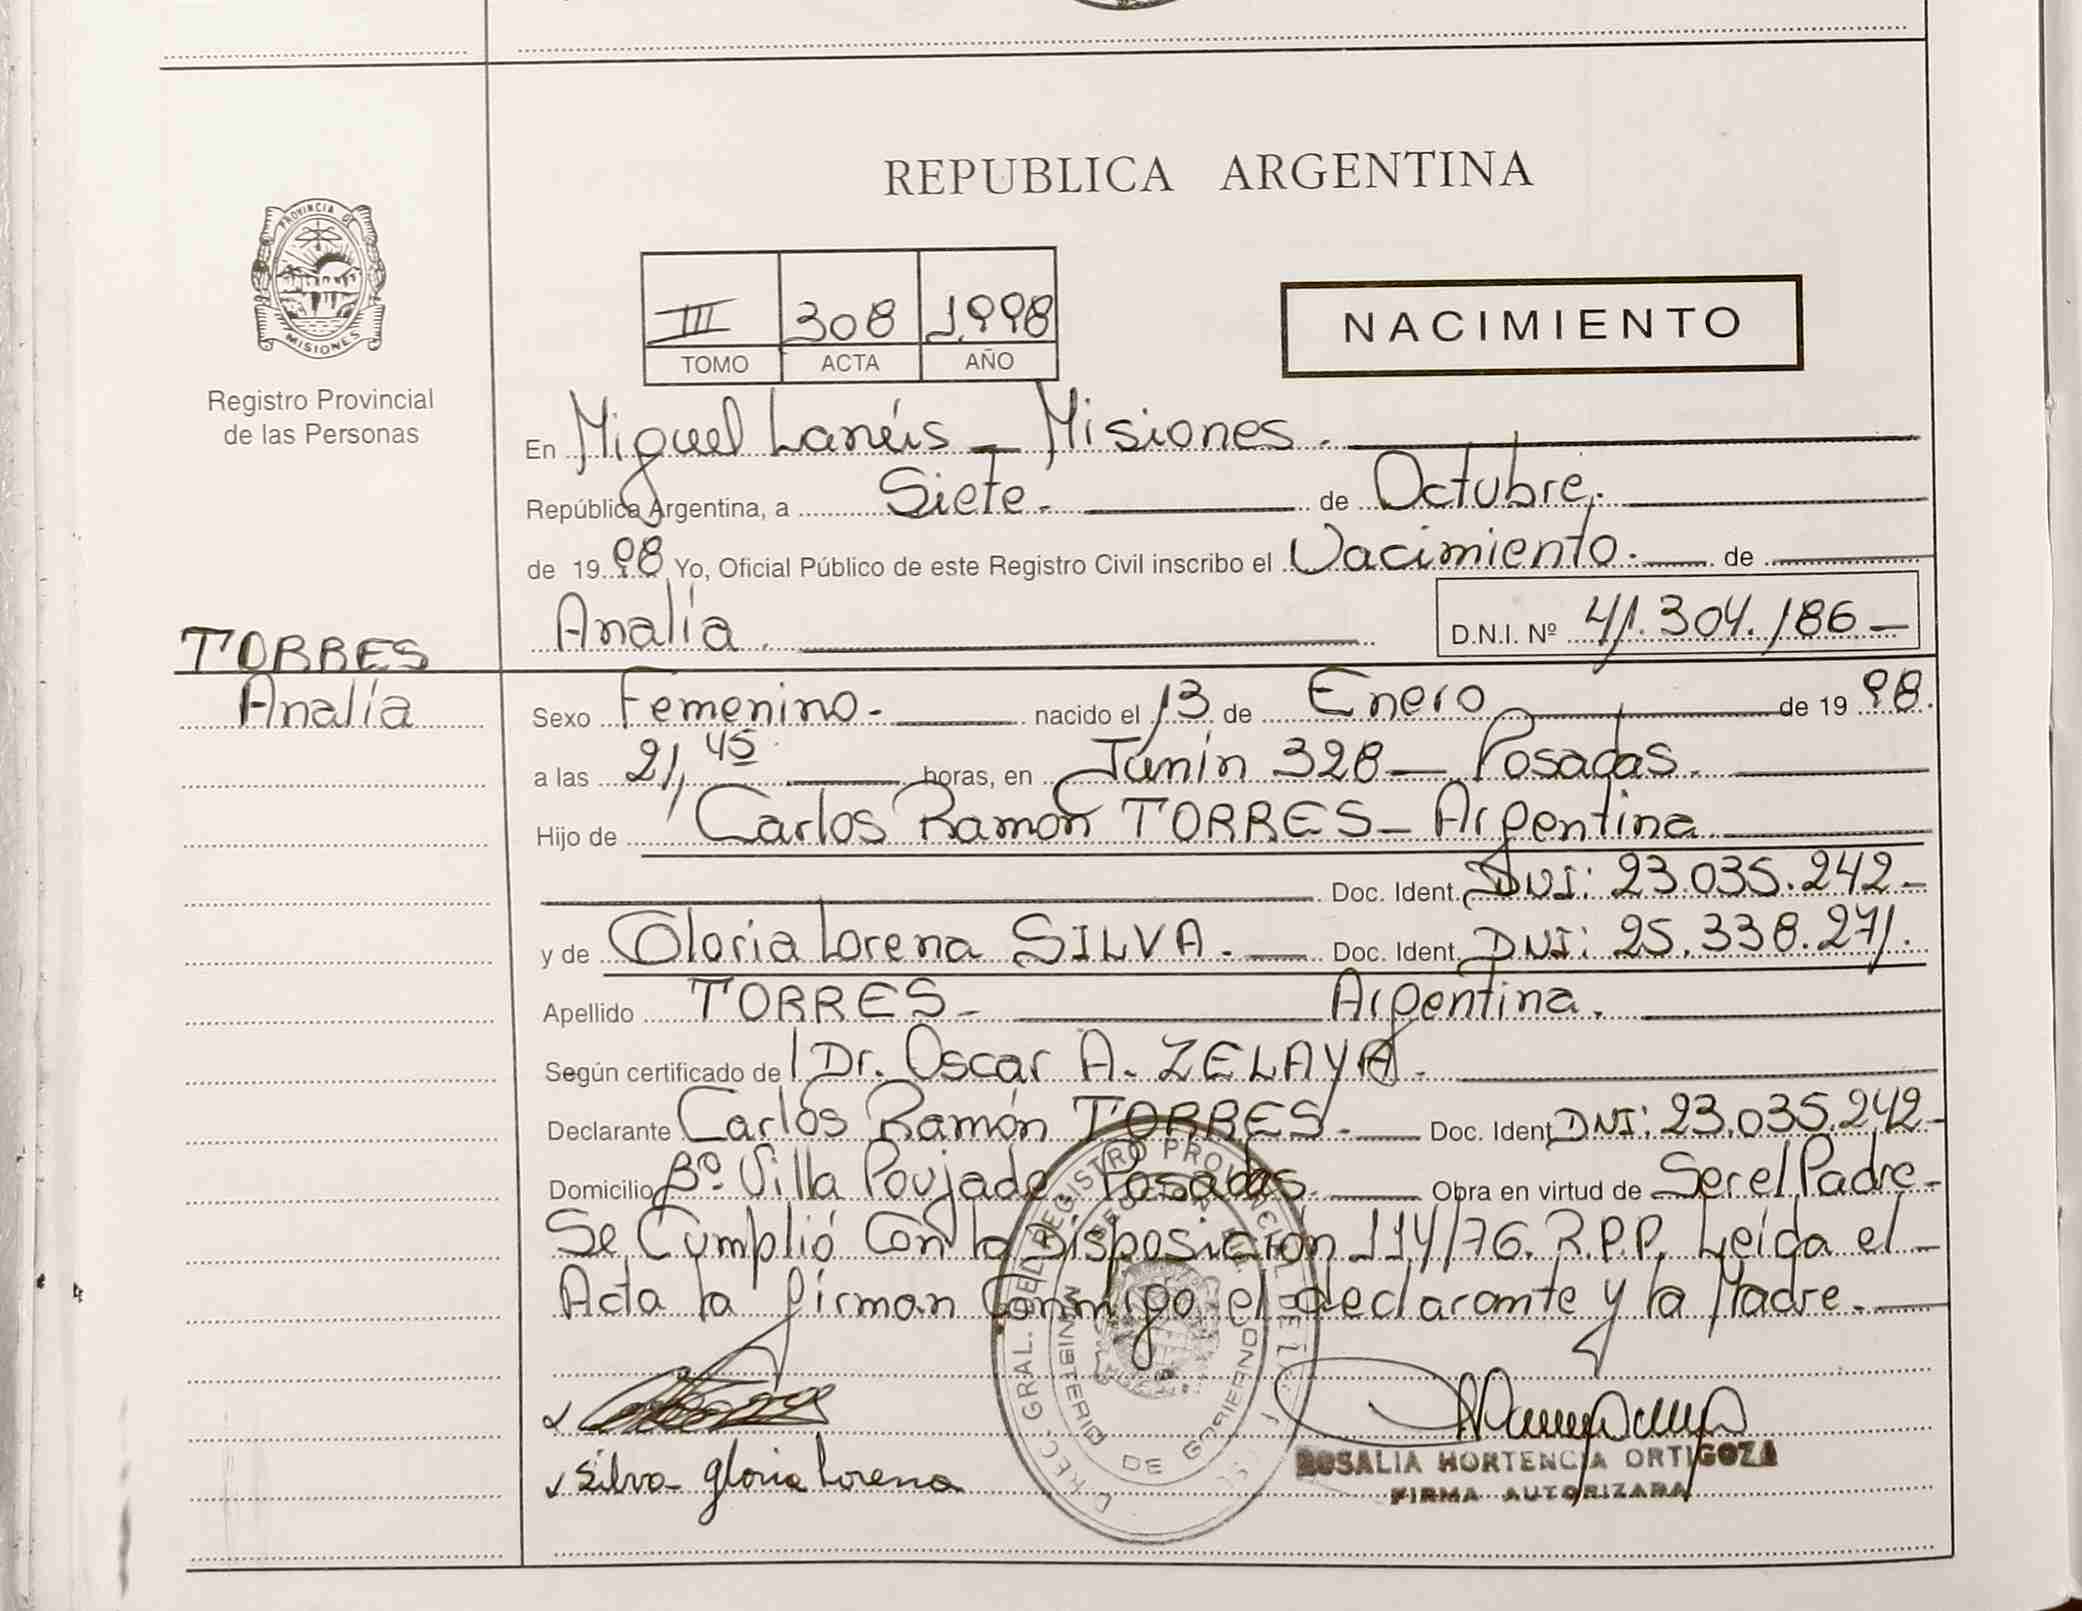 REPUBLICA ARGENTINA
PROVINCIA DE
MISIONES
Registro Provincial
de las Personas
III 308 1998
TOMO ACTA AÑO
NACIMIENTO
En Miguel Lanús - Misiones.
República Argentina, a Siete. de Octubre.
de 19 98 Yo, Oficial Público de este Registro Civil inscribo el Nacimiento. de
Analía. D.N.I. Nº 41.304.186-
TORRES
Analía
Sexo Femenino. nacido el 13 de Enero de 19 98.
a las 21,45 horas, en Junín 328 - Posadas.
Hijo de Carlos Ramón TORRES - Argentina
Doc. Ident. DNI: 23.035.242-
y de Gloria Lorena SILVA. Doc. Ident. DNI: 25.338.271.
Apellido TORRES - Argentina.
Según certificado de Dr. Oscar A. ZELAYA.
Declarante Carlos Ramón TORRES. Doc. Ident DNI: 23.035.242-
Domicilio Bº. Villa Poujade Posadas. Obra en virtud de Ser el Padre-
Se Cumplió Con la Disposición 114/76. R.P.P. Leída el
Acta la firman Conmigo el declarante y la Madre.
Silva gloria Lorena
ROSALIA HORTENCIA ORTIGOZA
FIRMA AUTORIZADA
REGISTRO PROVINCIAL DE
MINISTERIO DE GOBIERNO